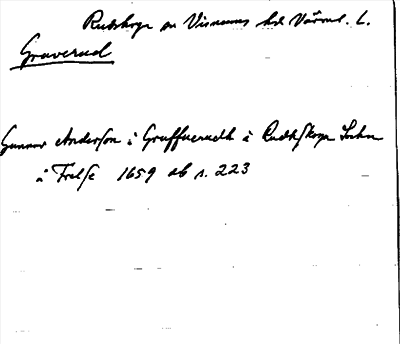 Rudskoga sn Visnums hd Värml. L.
Graverud
Gunnar Anderson i Graffuerudh i Rudhskoga Sochn
i Frelse 1659 db s. 223